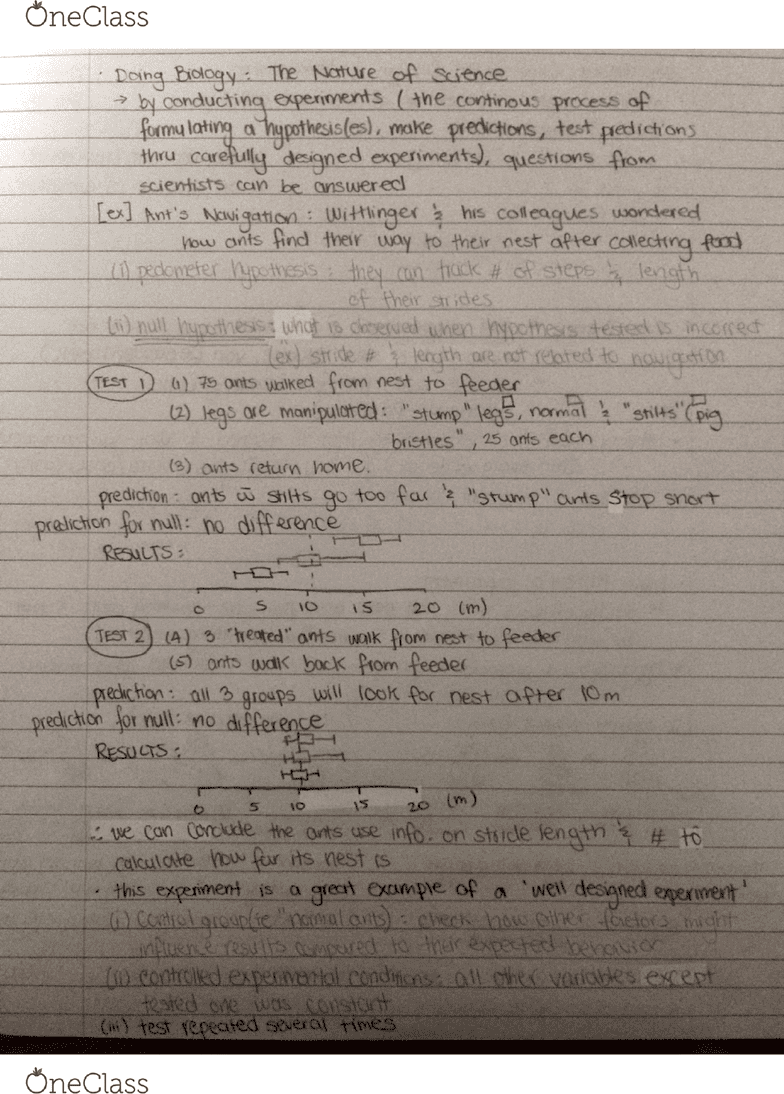 OneClass
· Doing Biology: The Nature of Science
→ by conducting experiments (the continous process of
formulating a hypothesis(es), make predictions, test predictions
thru carefully designed experiments), questions from
scientists can be answered
[ex] Ant's Navigation: Wittlinger & his colleagues wondered
how ants find their way to their nest after collecting food
(i) pedometer hypothesis: they can track # of steps & length
of their strides
(ii) null hypothesis: what is observed when hypothesis tested is incorrect
(ex) stride # & length are not related to navigation
TEST 1 (1) 75 ants walked from nest to feeder
(2) legs are manipulated: "stump" legs, normal & "stilts" (pig
bristles", 25 ants each
(3) ants return home.
prediction: ants w̄ stilts go too far & "stump" ants stop short
prediction for null: no difference
RESULTS:
0 5 10 15 20 (m)
TEST 2 (4) 3 "treated" ants walk from nest to feeder
(5) ants walk back from feeder
prediction: all 3 groups will look for nest after 10m
prediction for null: no difference
RESULTS:
0 5 10 15 20 (m)
∴ we can conclude the ants use info. on stride length & # to
calculate how far its nest is
· this experiment is a great example of a 'well designed experiment'
(i) control group (ie "normal ants): check how other factors might
influence results compared to their expected behavior
(ii) controlled experimental conditions: all other variables except
tested one was constant
(iii) test repeated several times
OneClass